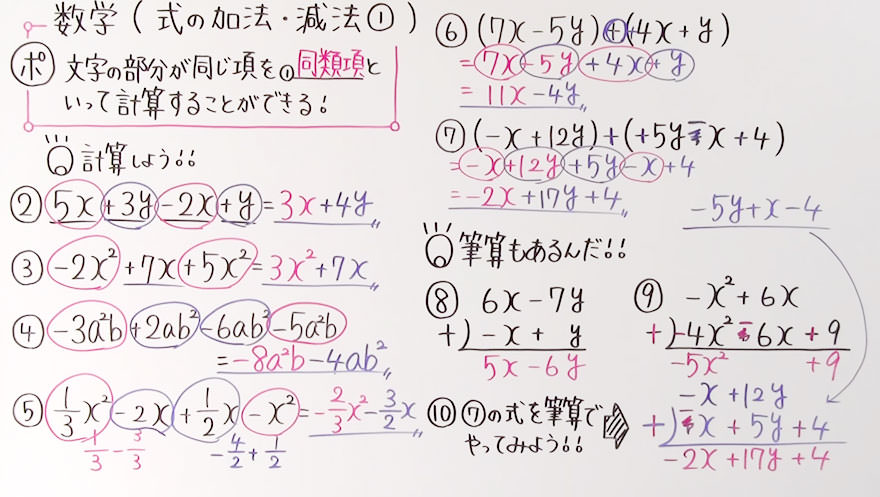 数学(式の加法・減法①)
ポ 文字の部分が同じ項を①同類項と
いって計算することができる!
計算しよう!!
② 5x+3y-2x+y=3x+4y
③ -2x²+7x+5x²=3x²+7x
④ -3a²b+2ab²-6ab²-5a²b
=-8a²b-4ab²
⑤ 1/3x²-2x+1/2x-x²=-2/3x²-3/2x
1/3-3/3 -4/2+1/2
⑥ (7x-5y)+(+4x+y)
=7x-5y+4x+y
=11x-4y
⑦ (-x+12y)+(+5y-x+4)
=-x+12y+5y-x+4
=-2x+17y+4
-5y+x-4
筆算もあるんだ!!
⑧ 6x-7y
+)-x+y
5x-6y
⑨ -x²+6x
+)-4x²-6x+9
-5x² +9
⑩ ⑦の式を筆算で
やってみよう!!
-x+12y
+)-x+5y+4
-2x+17y+4